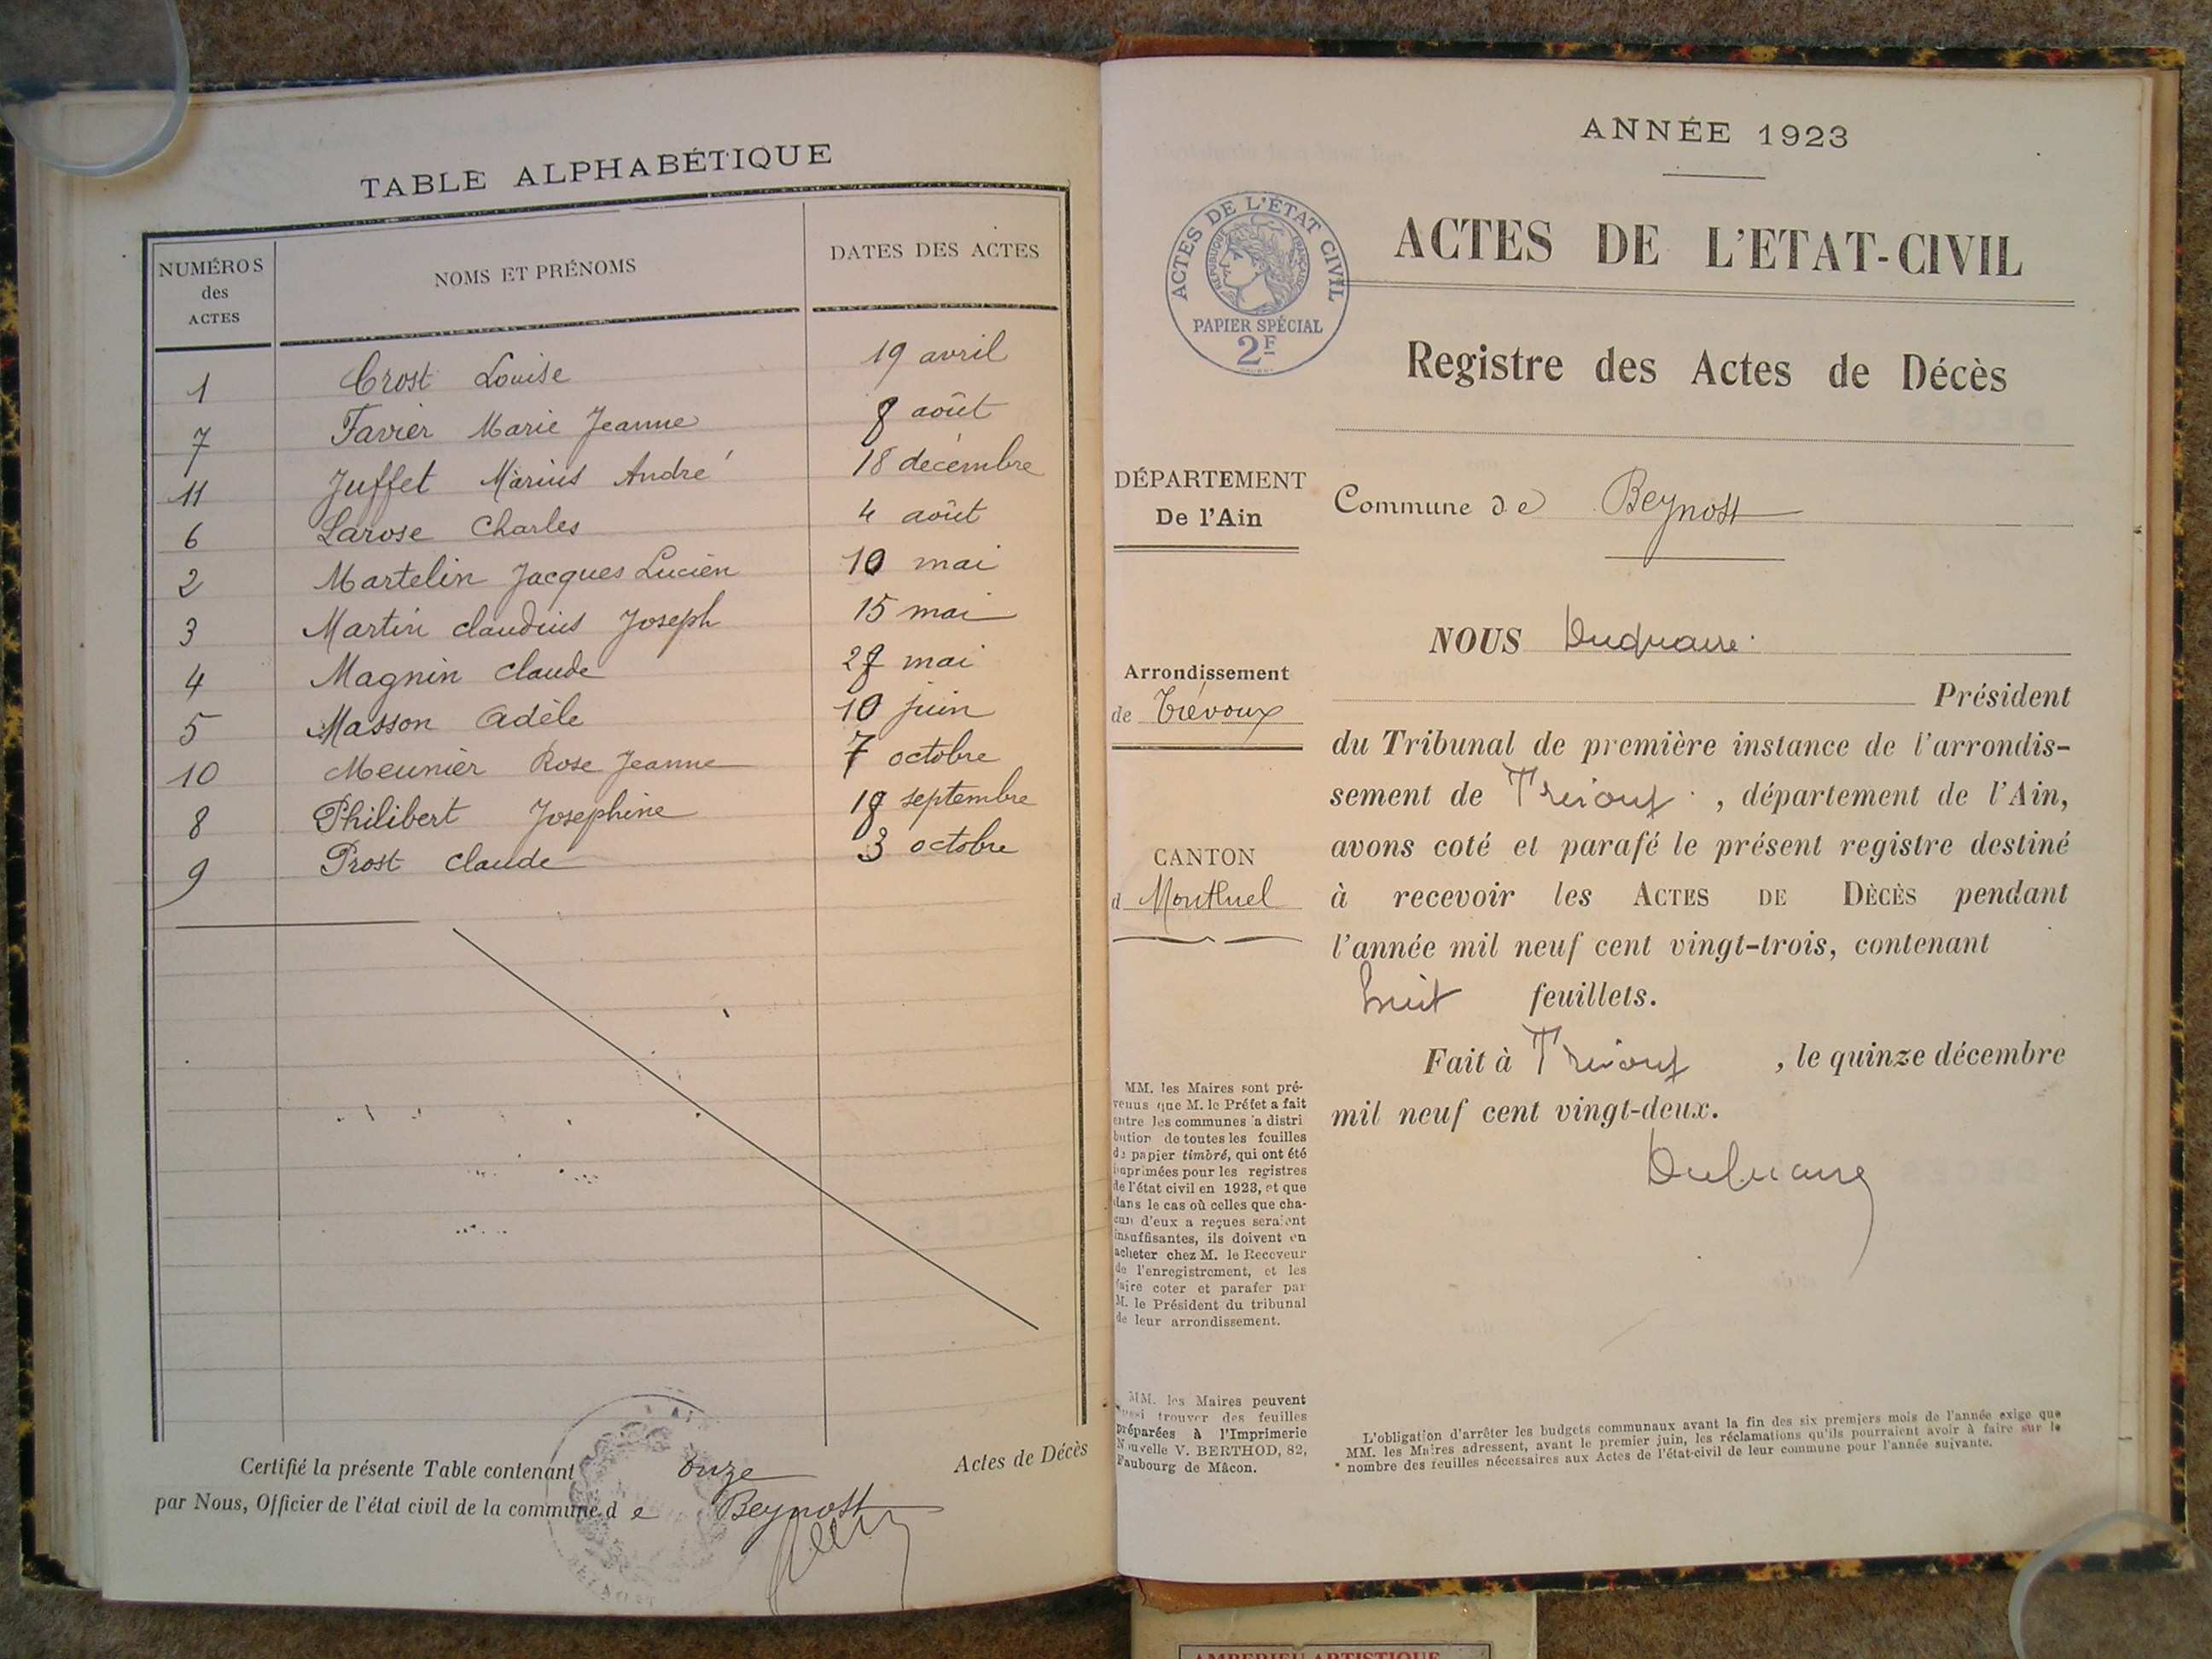 TABLE ALPHABÉTIQUE
NUMÉROS des ACTES NOMS ET PRÉNOMS DATES DES ACTES
1 Crost Louise 19 avril
7 Favier Marie Jeanne 8 août
11 Juffet Marius André 18 décembre
6 Larose Charles 4 août
2 Martelin Jacques Lucien 10 mai
3 Martin claudius Joseph 15 mai
4 Magnin claude mai
5 Masson Adèle 10 juin
10 Meunier Rose Jeanne 7 octobre
8 Philibert Josephine septembre
9 Prost claude 3 octobre
Certifié la présente Table contenant onze Actes de Décès
par Nous, Officier de l'état civil de la commune de Beynost
ANNÉE 1923
ACTES DE L'ÉTAT CIVIL
RÉPUBLIQUE FRANÇAISE
PAPIER SPÉCIAL
2F
ACTES DE L'ETAT-CIVIL
Registre des Actes de Décès
DÉPARTEMENT
De l'Ain
Commune de Beynost
Arrondissement
de Trévoux
CANTON
d Montluel
NOUS
Président
du Tribunal de première instance de l'arrondis-
sement de Trévoux, département de l'Ain,
avons coté et parafé le présent registre destiné
à recevoir les ACTES DE DÉCÈS pendant
l'année mil neuf cent vingt-trois, contenant
huit feuillets.
Fait à Trévoux, le quinze décembre
mil neuf cent vingt-deux.
MM. les Maires sont pré-
venus que M. le Préfet a fait
entre les communes a distri
bution de toutes les feuilles
de papier timbré, qui ont été
imprimées pour les registres
de l'état civil en 1923, et que
dans le cas où celles que cha-
cun d'eux a reçues seraient
insuffisantes, ils doivent en
acheter chez M. le Receveur
de l'enregistrement, et les
faire coter et parafer par
M. le Président du tribunal
de leur arrondissement.
MM. les Maires peuvent
aussi trouver des feuilles
préparées à l'Imprimerie
Nouvelle V. BERTHOD, 82,
Faubourg de Mâcon.
L'obligation d'arrêter les budgets communaux avant la fin des six premiers mois de l'année exige que
MM. les Maires adressent, avant le premier juin, les réclamations qu'ils pourraient avoir à faire sur le
nombre des feuilles nécessaires aux Actes de l'état-civil de leur commune pour l'année suivante.
AMBERIEU ARTISTIQUE